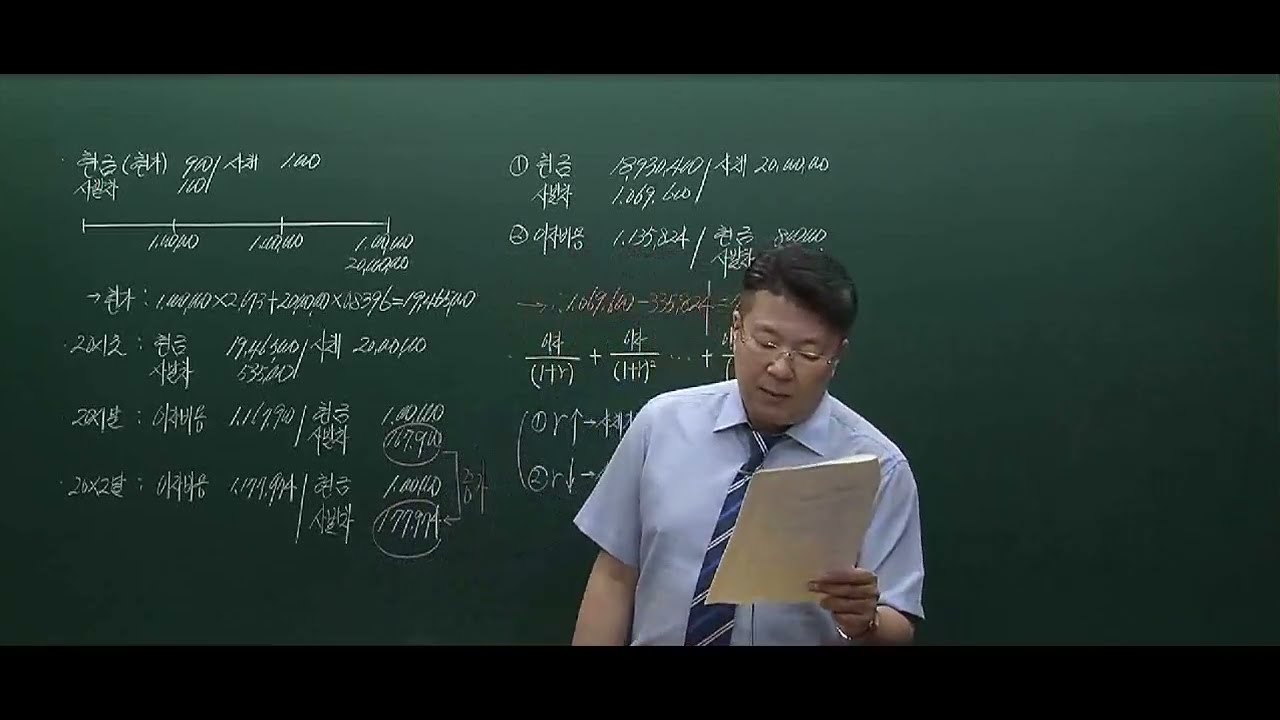 · 현금(현가) 900 / 사채 1,000
사발차 100
1,000,000 1,000,000 1,000,000
20,000,000
→ 현가 : 1,000,000×2.673+20,000,000×0.8396=19,465,000
· 20X1초 : 현금 19,465,000 / 사채 20,000,000
사발차 535,000
20X1말 : 이자비용 1,167,900 / 현금 1,000,000
사발차 167,900
· 20X2말 : 이자비용 1,177,974 / 현금 1,000,000
사발차 177,974
증가
① 현금 18,930,400 / 사채 20,000,000
사발차 1,069,600
② 이자비용 1,135,824 / 현금 800,000
사발차
→ ∴ 1,069,600-335,824=
· 이자/(1+r) + 이자/(1+r)² ... +
① r↑→사채
② r↓→